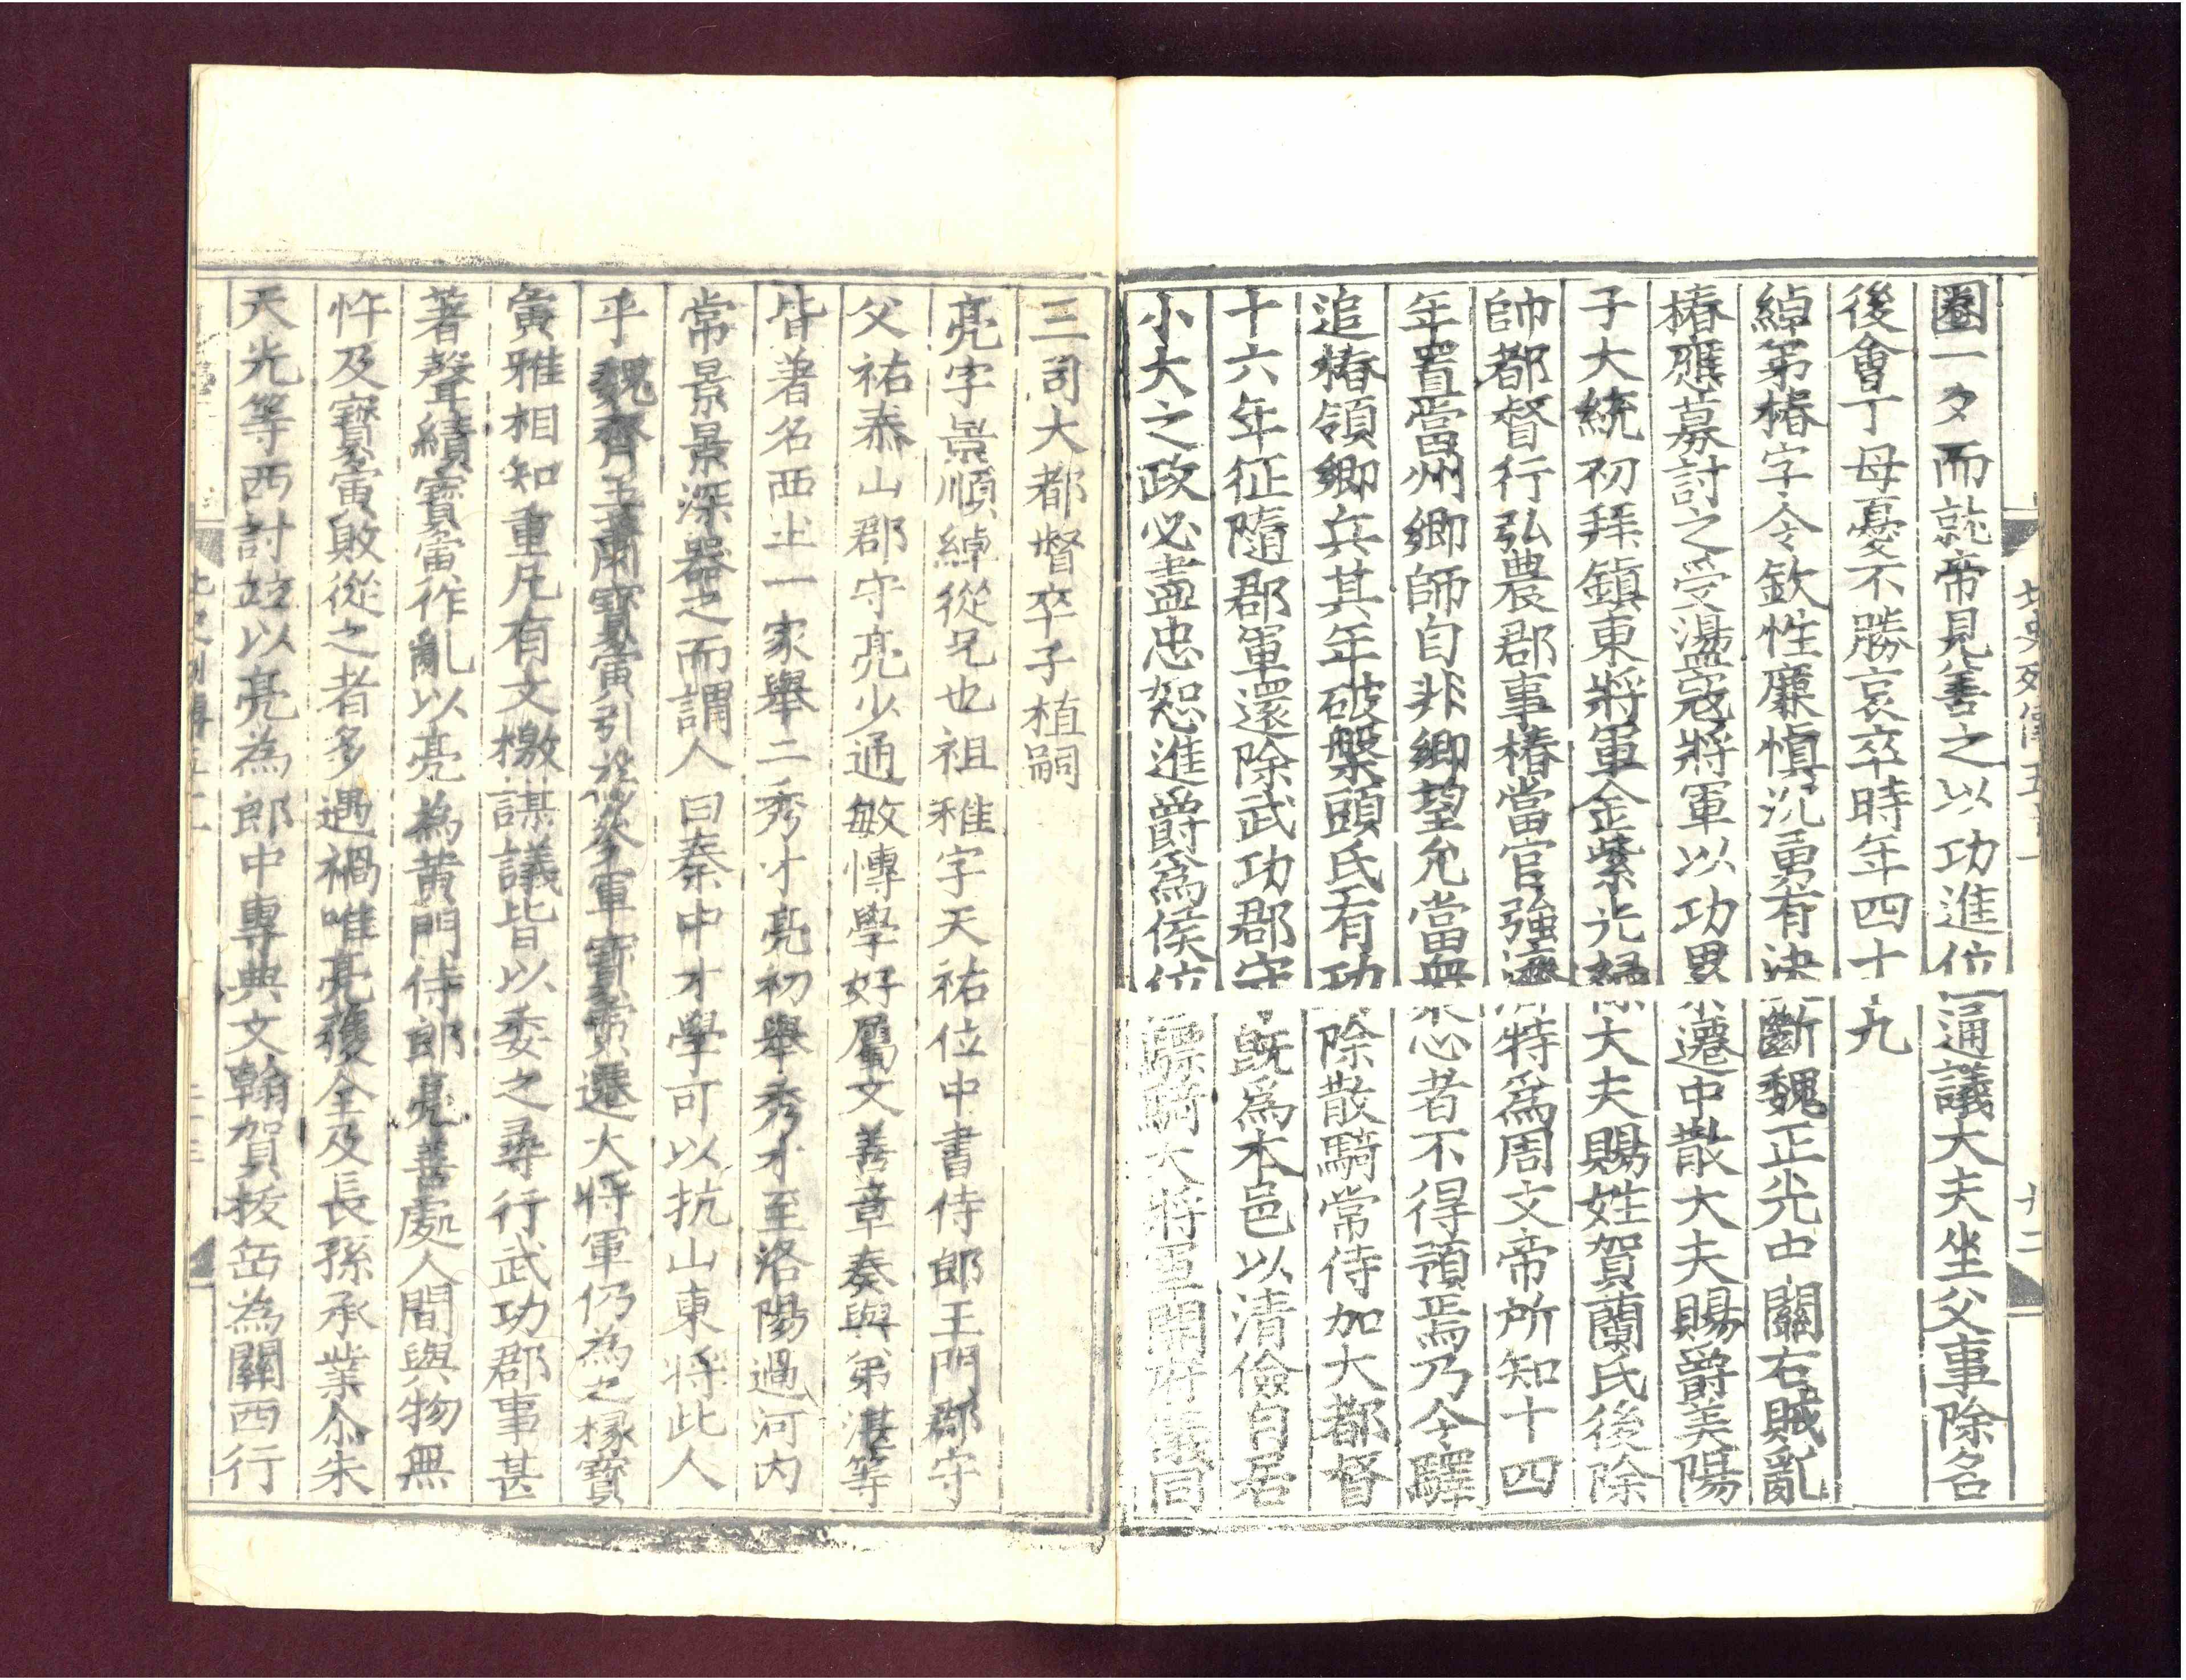 圈一夕而就帝見善之以功進位通議大夫坐父事除名
後會丁母憂不勝哀卒時年四十九
綽弟椿字令欽性廉慎沉勇有決斷魏正光中關右賊亂
椿應募討之受盪寇將軍以功累遷中散大夫賜爵美陽
子大統初拜鎮東將軍金紫光祿大夫賜姓賀蘭氏後除
帥都督行弘農郡事椿當官強濟特爲周文帝所知十四
年置當州鄉師自非鄉望允當衆心者不得預焉乃令驛
追椿領鄉兵其年破槃頭氏有功除散騎常侍加大都督
十六年征隨郡軍還除武功郡守旣爲本邑以清儉自居
小大之政必盡忠恕進爵爲侯位驃騎大將軍開府儀同
北史列傳五十一
廿二
三司大都督卒子植嗣
亮字景順綽從兄也祖稚字天祐位中書侍郎玉門郡守
父祐泰山郡守亮少通敏博學好屬文善章奏與弟湛等
皆著名西土一家舉二秀才亮初舉秀才至洛陽過河內
常景景深器之而謂人曰秦中才學可以抗山東將此人
乎魏齊王蕭寶夤引爲參軍寶夤遷大將軍仍為之掾寶
夤雅相知重凡有文檄謀議皆以委之尋行武功郡事甚
著聲績寶夤作亂以亮為黃門侍郎亮善處人間與物無
忤及寶夤敗從之者多遇禍唯亮獲全及長孫承業尒朱
天光等西討竝以亮為郎中專典文翰賀拔岳為關西行